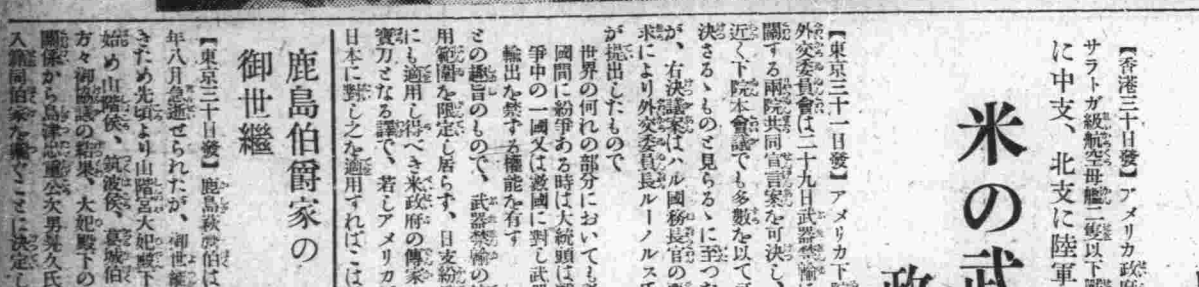 【香港三十日發】アメリカ政府
サラトガ級航空母艦二隻以下
に中支、北支に陸軍
米の武
政
【東京三十一日發】アメリカ下
外交委員會は二十九日武器禁輸に
關する兩院共同宣言案を可決し、
近く下院本會議でも多數を以て可
決さるゝものと見らるゝに至つた
が、右決議案はハル國務長官の要
求により外交委員長ルーノルス氏
が提出したもので
世界の何れの部分においても
國間に紛爭ある時は大統領は
爭中の一國又は數國に對し武
輸出を禁ずる權能を有す
との趣旨のもので、武器禁輸の
用範圍を限定し居らず、日支紛
にも適用し得べき米政府の傳家
寶刀となる譯で、若しアメリカ
日本に對し之を適用すればこは
鹿島伯爵家の
御世繼
【東京三十日發】鹿島萩麿伯は
年八月急逝せられたが、御世繼
きため先頃より山階宮大妃殿下
始め山階侯、筑波侯、葛城伯
方々御協議の結果、大妃殿下の
關係から島津忠重公次男晃久氏
入籍同伯家を繼ぐことに決定し